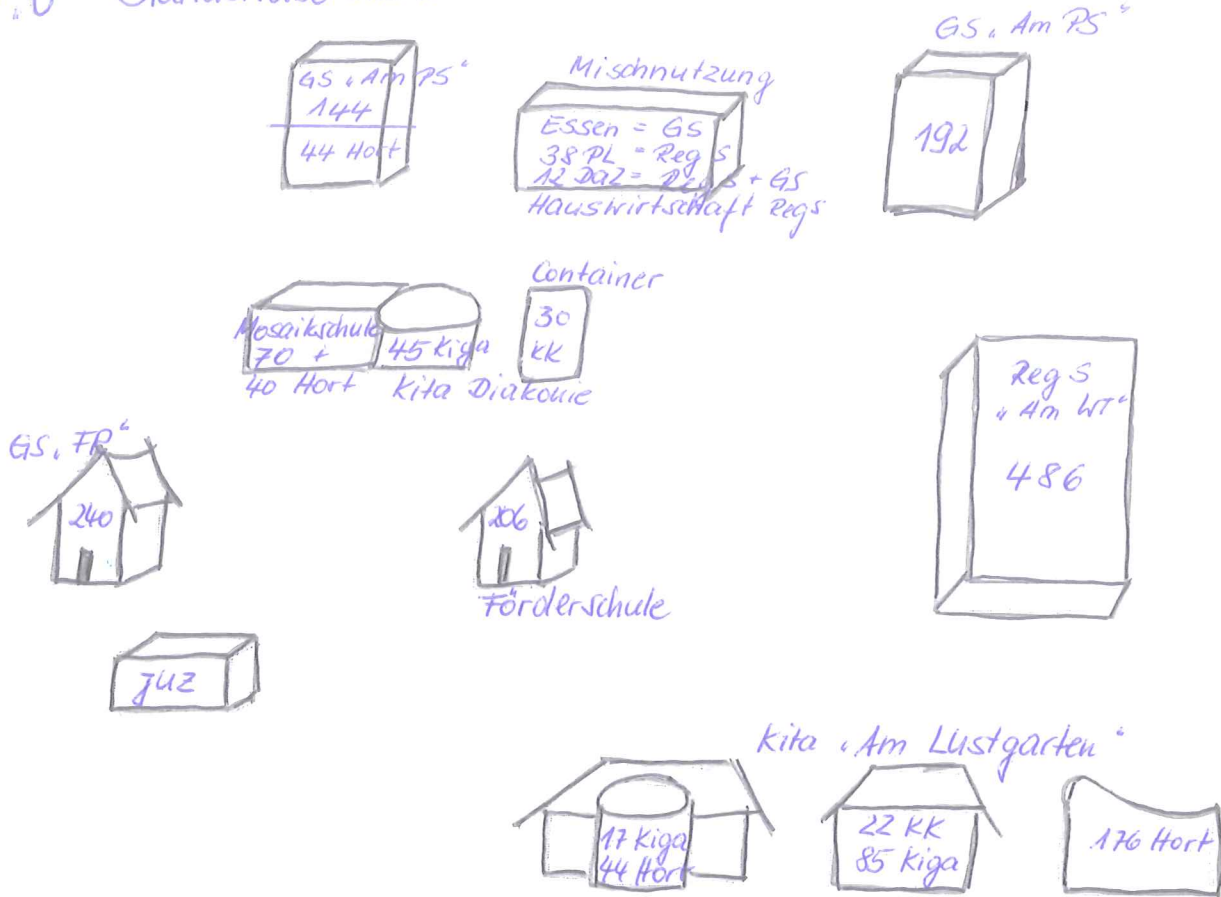 GS „Am PS“
144
44 Hort
Mischnutzung
Essen = GS
38 PL = Reg S
12 DaZ = Reg S + GS
Hauswirtschaft RegS
GS „Am PS“
192
Mosaikschule
70 +
40 Hort
45 Kiga
Kita Diakonie
Container
30
KK
Reg S
„Am WT“
486
GS „FR“
240
206
Förderschule
JUZ
Kita „Am Lustgarten“
17 Kiga
44 Hort
22 KK
85 Kiga
176 Hort